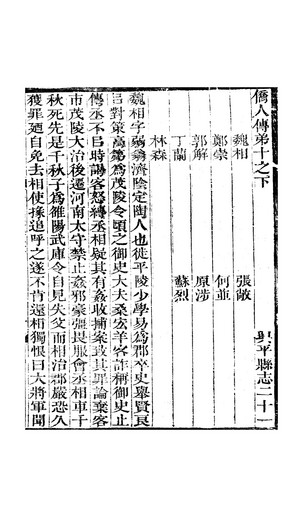 僑人傳弟十之下
魏相　張敞
鄭崇　何並
郭解　原涉
丁蘭　蘇烈
林森
魏相字弱翁濟陰定陶人也徙平陵少學易爲郡卒史舉賢良
吕對策高第爲茂陵令頃之御史大夫桑宏羊客詐稱御史止
傳丞不吕時謁客怒縛丞相疑其有姦收捕案致其罪論棄客
市茂陵大治後遷河南太守禁止姦邪豪彊畏服會丞相車千
秋死先是千秋子爲雒陽武庫令自見失父而相治郡嚴恐久
獲罪廼自免去相使掾追呼之遂不肯還相獨恨曰大將軍聞
興平縣志二十一